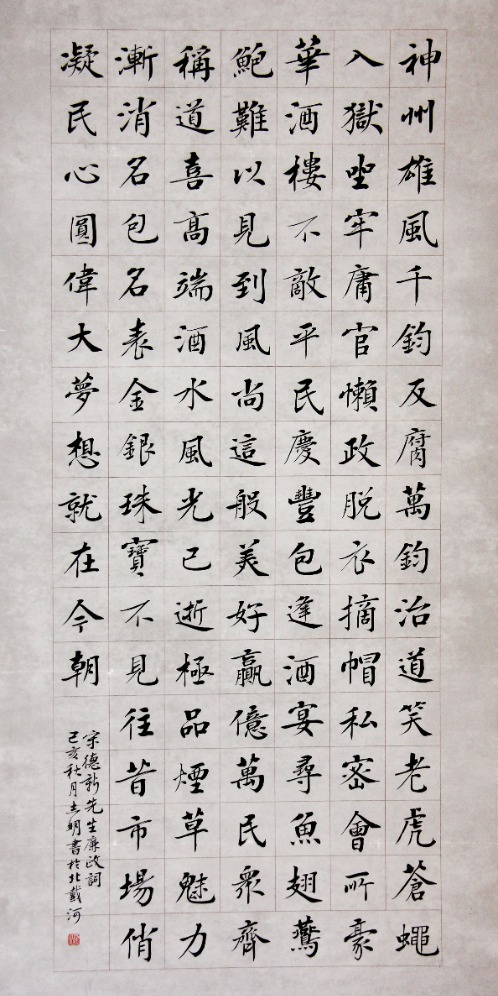 神州雄風千鈞反腐萬鈞治道笑老虎蒼蠅
入獄坐牢庸官懶政脫衣摘帽私密會所豪
華酒樓不敵平民慶豐包逢酒宴尋魚翅鷰
鮑難以見到風尚這般美好贏億萬民眾齊
稱道喜高端酒水風光已逝極品煙草魅力
漸消名包名表金銀珠寶不見往昔市場俏
凝民心圓偉大夢想就在今朝
宗德新先生廉政詞
己亥秋月志明書於北戴河